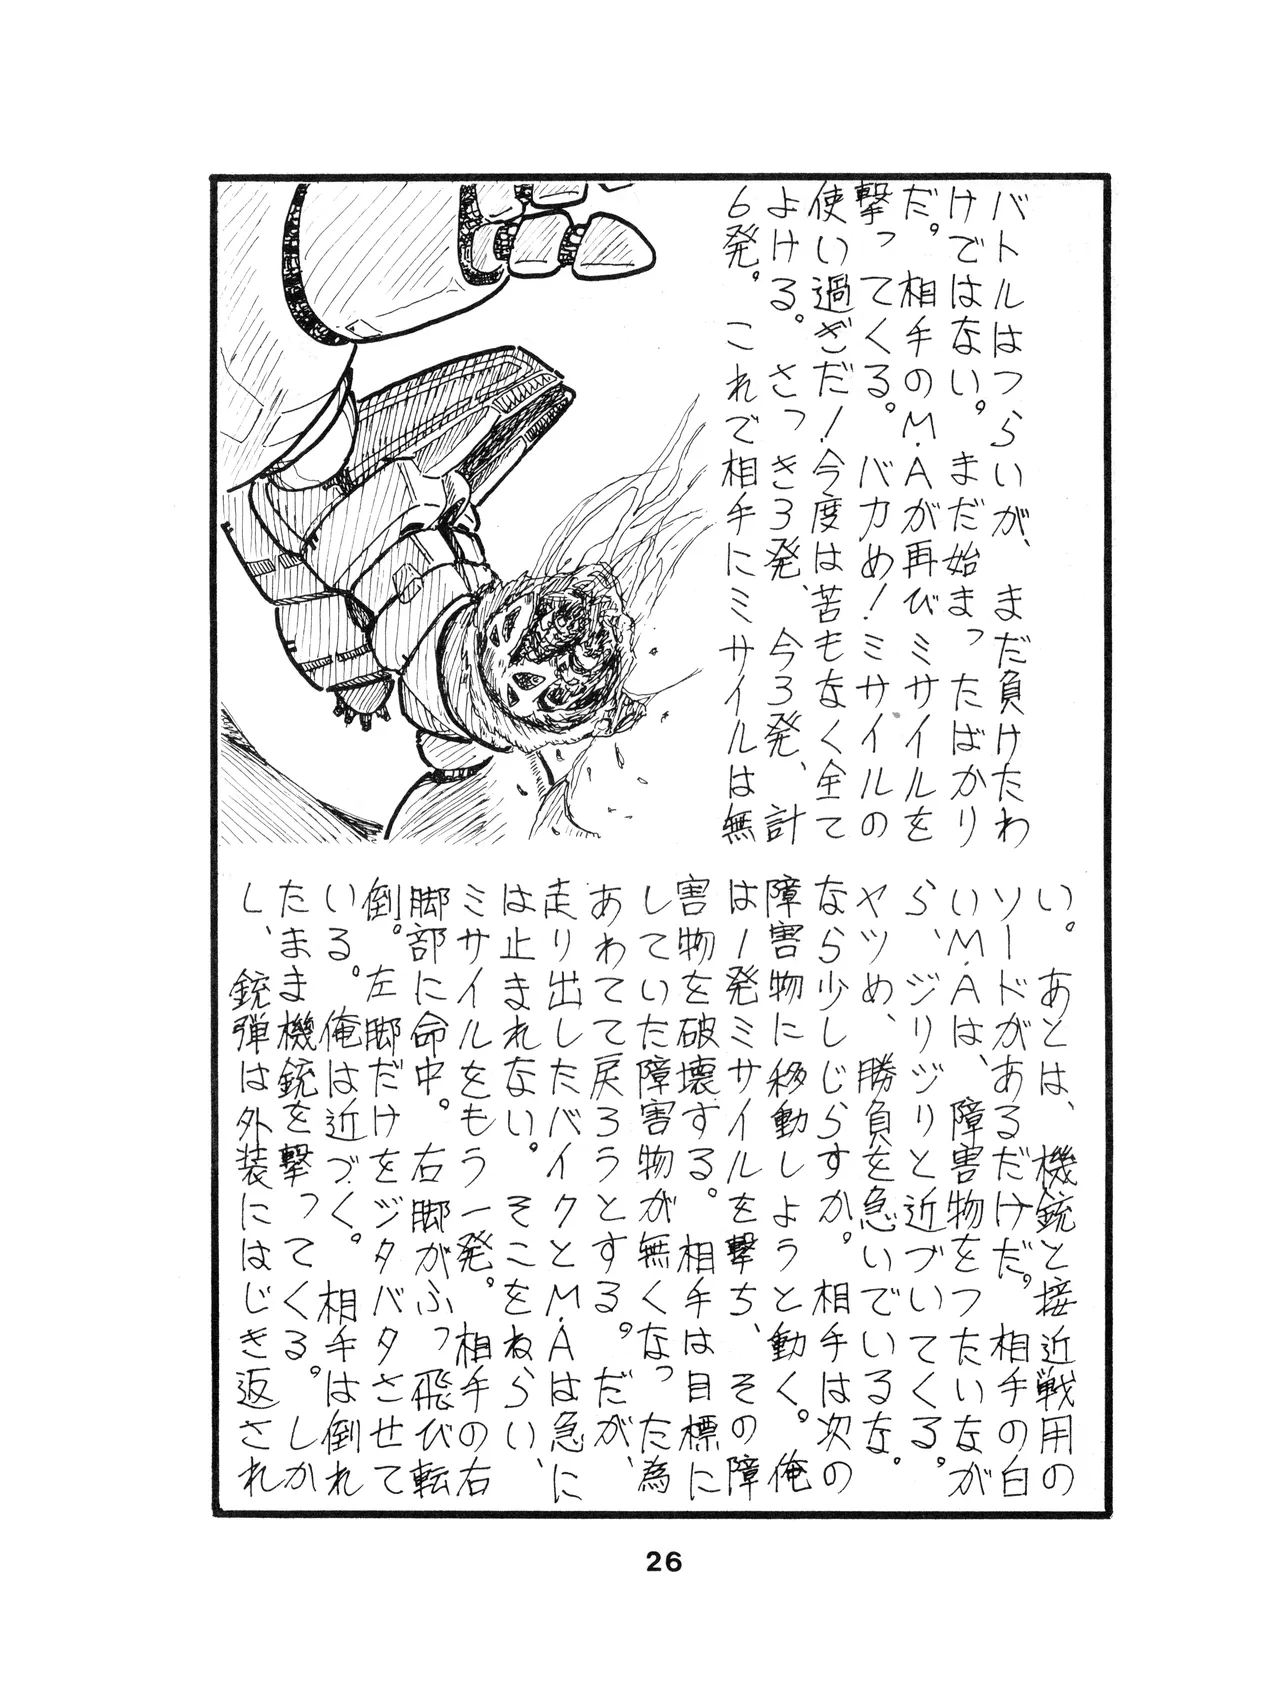 バトルはつらいが、まだ負けたわ
けではない。まだ始まったばかり
だ。相手のM・Aが再びミサイルを
撃ってくる。バカめ!ミサイルの
使い過ぎだ!今度は苦もなく全て
よける。さっき3発、今3発、計
6発。これで相手にミサイルは無
い。あとは、機銃と接近戦用の
ソードがあるだけだ。相手の白
いM・Aは、障害物をつたいなが
ら、ジリジリと近づいてくる。
ヤツめ、勝負を急いでいるな。
なら少しじらすか。相手は次の
障害物に移動しようと動く。俺
は1発ミサイルを撃ち、その障
害物を破壊する。相手は目標に
していた障害物が無くなった為
あわてて戻ろうとする。だが、
走り出したバイクとM・Aは急に
は止まれない。そこをねらい、
ミサイルをもう一発。相手の右
脚部に命中。右脚がふっ飛び転
倒。左脚だけをジタバタさせて
いる。俺は近づく。相手は倒れ
たまま機銃を撃ってくる。しか
し、銃弾は外装にはじき返され
26